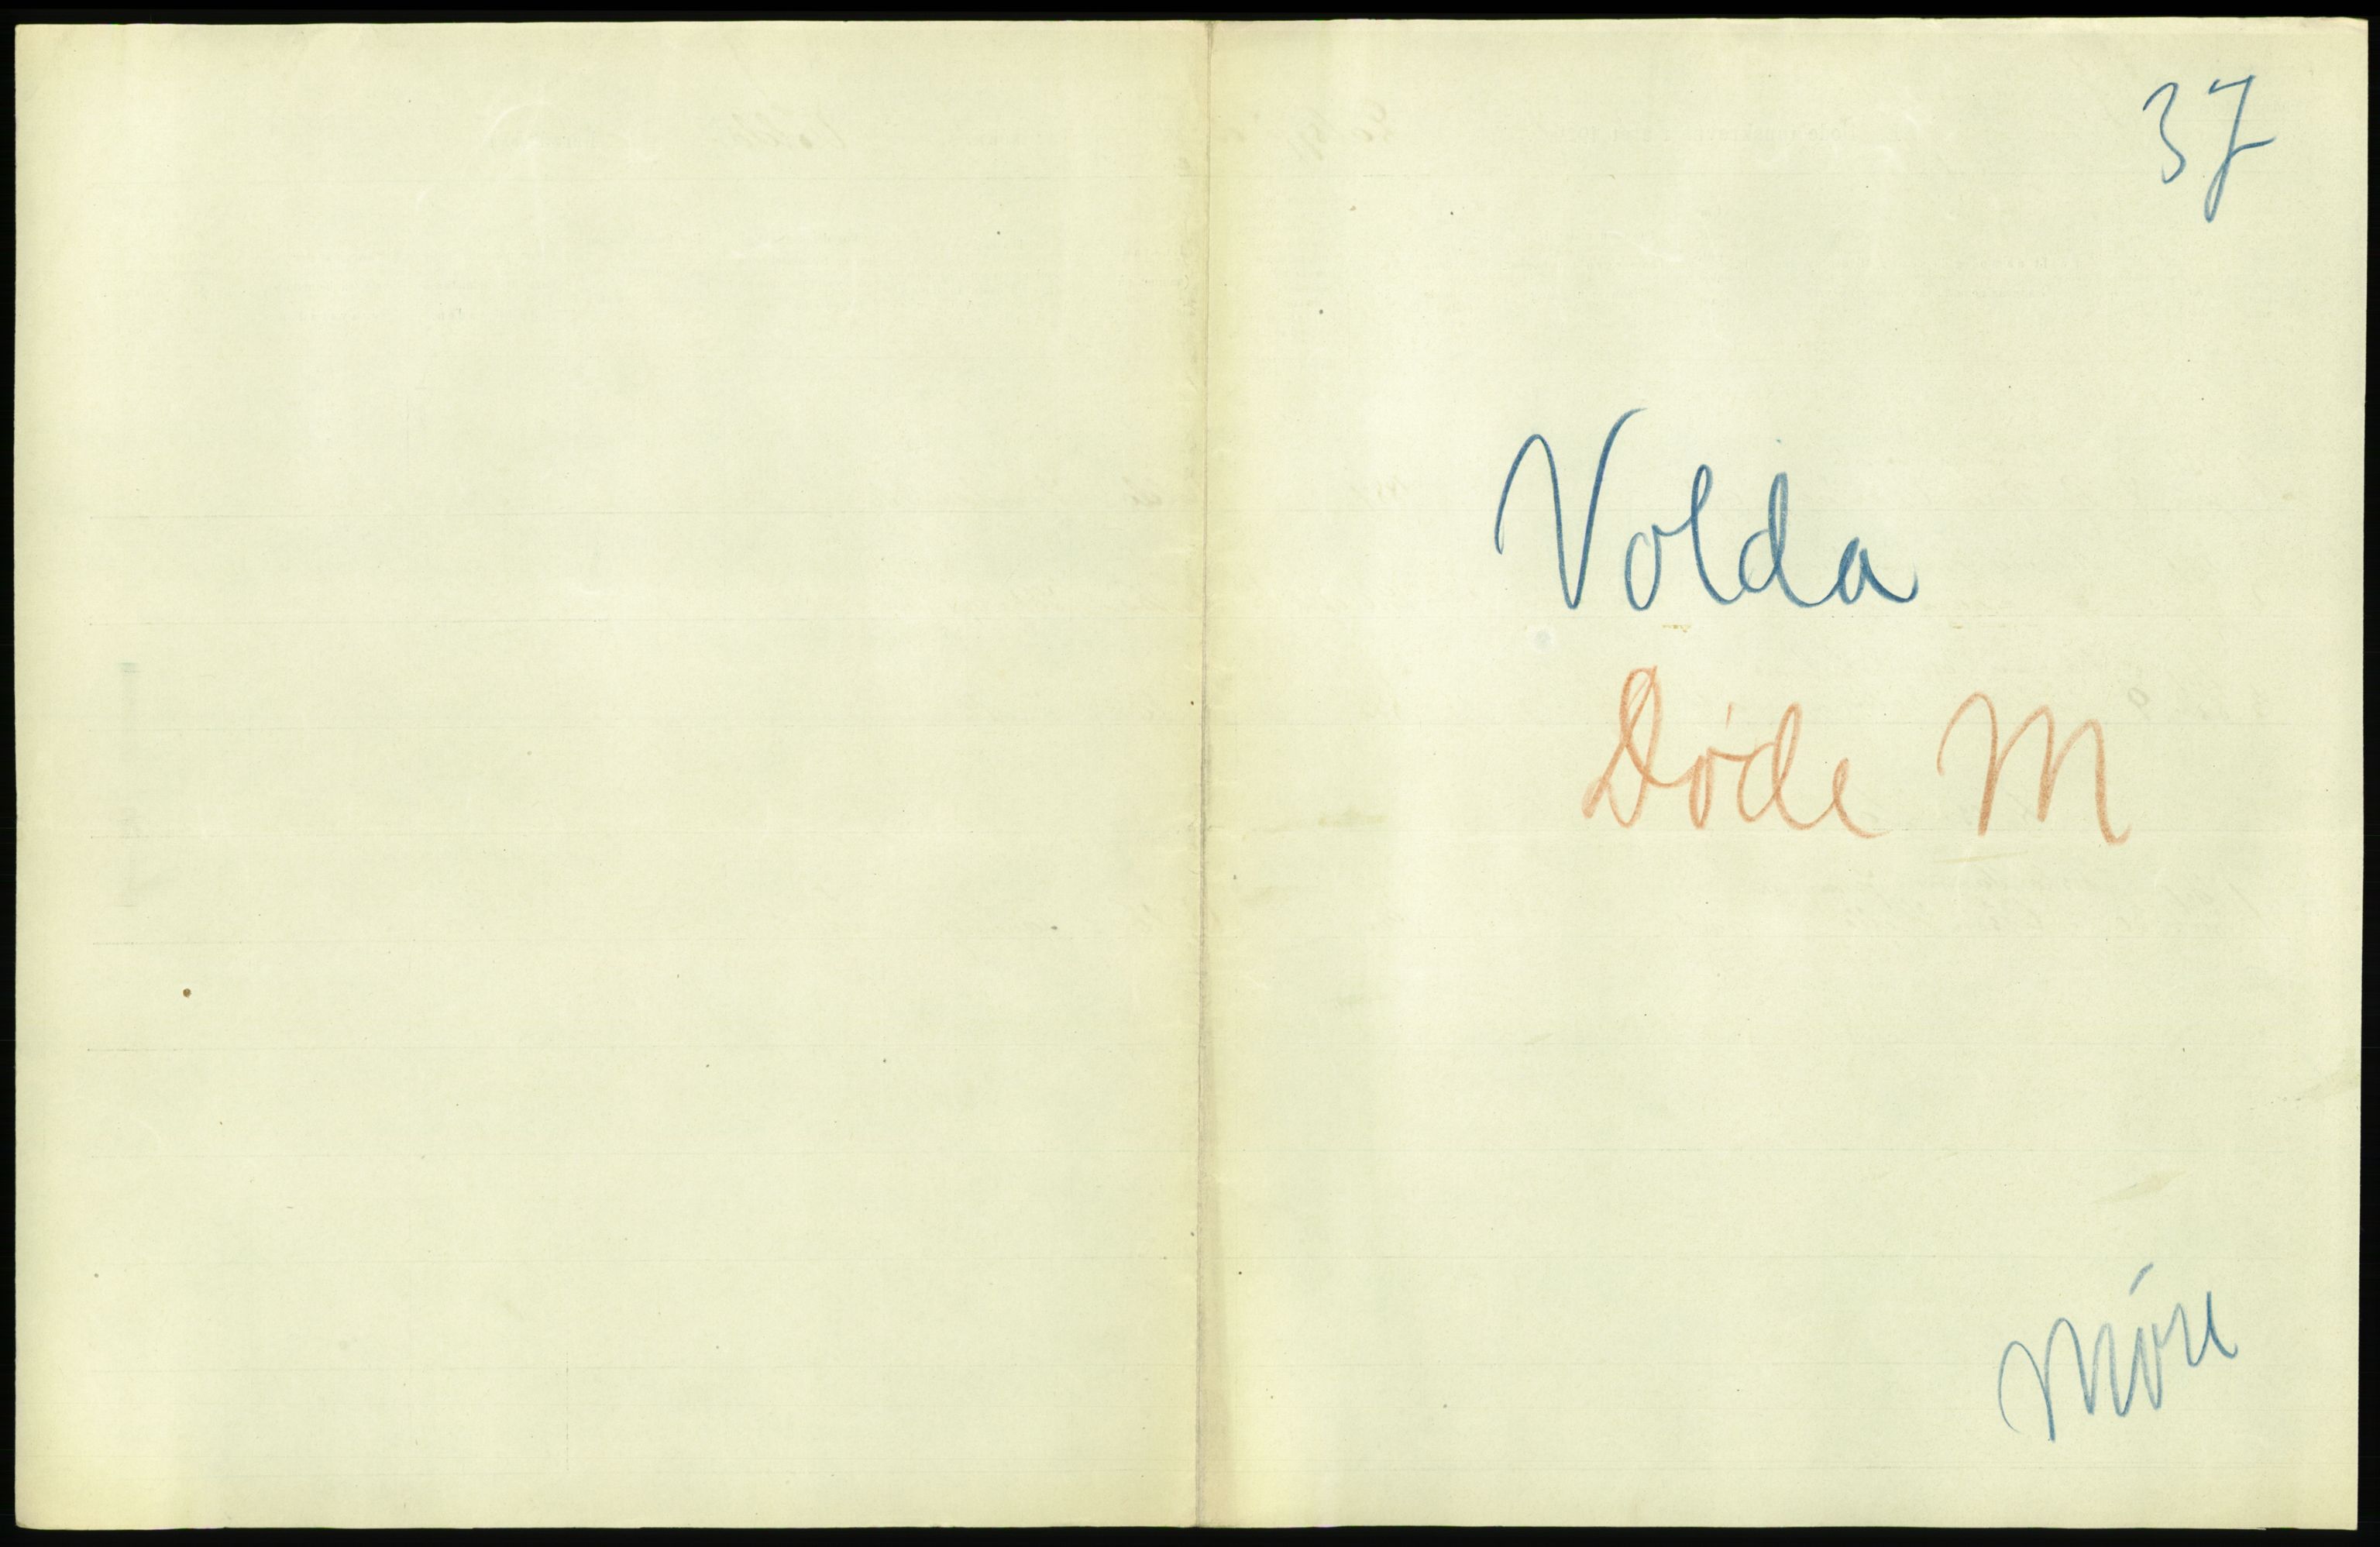 37
Volda
Døde M
Møre